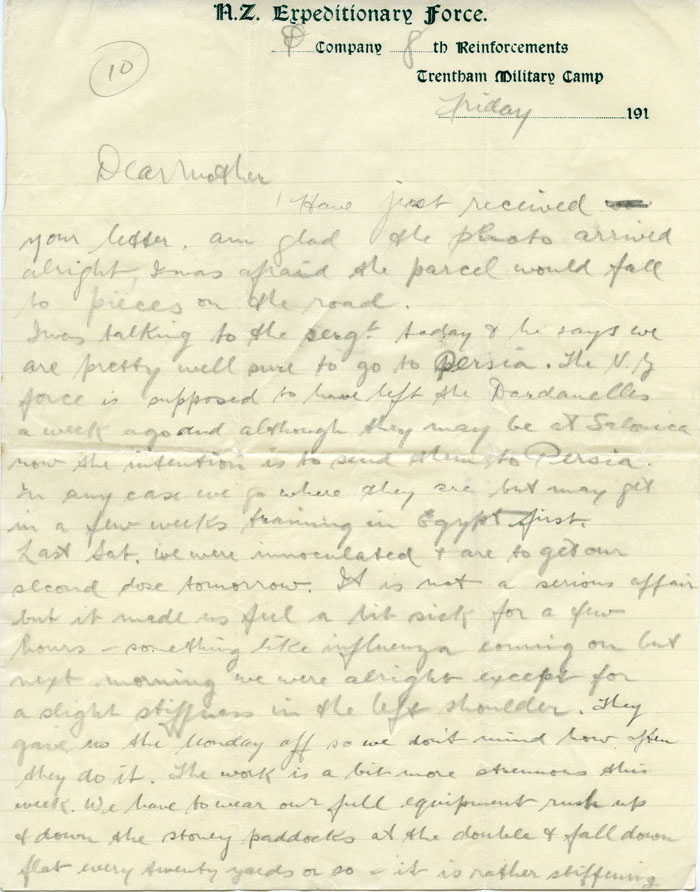 N.Z. Expeditionary Force.
D Company 8th Reinforcements
Trentham Military Camp
10
Friday 191
Dear Mother
Have just received
your letter. am glad the photo arrived
alright, I was afraid the parcel would fall
to pieces on the road.
I was talking to the sergt today & he says we
are pretty well sure to go to Persia. The N.Z
force is supposed to have left the Dardanelles
a week ago and although they may be at Salonica
now the intention is to send them to Persia.
In any case we go where they are but may get
in a few weeks training in Egypt first.
Last Sat. we were innoculated & are to get our
second dose tomorrow. It is not a serious affair
but it made us feel a bit sick for a few
hours – something like influenza coming on but
next morning we were alright except for
a slight stiffness in the left shoulder. They
gave us the Monday off so we don't mind how often
they do it. The work is a bit more strenuous this
week. We have to wear our full equipment rush up
& down the stoney paddocks at the double & fall down
flat every twenty yards or so – it is rather stiffening